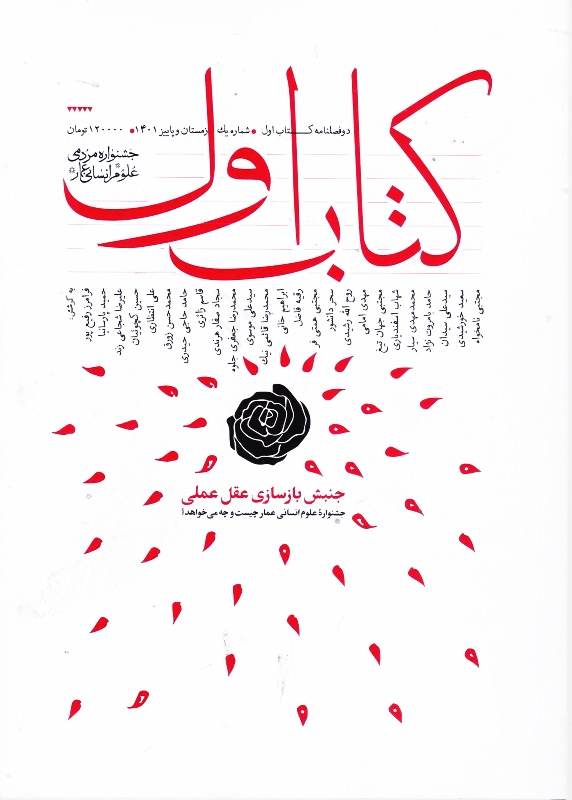 دوفصلنامه کتاب اول • شماره یک • زمستان و پاییز ۱۴۰۱ • ۱۲۰۰۰۰ تومان
کتاب اول
جشنواره مردمی
علوم انسانی عمار
به کوشش:
فرامرز رفیع پور
حمید پارسانیا
علیرضا شجاعی زند
حسین کچوئیان
علی انتظاری
محمدحسن زورق
حامد حاجی حیدری
قاسم زائری
سجاد صفار هرندی
محمدرضا جعفری جلوه
سیدعلی موسوی
محمدرضا قائمی نیک
ابراهیم خانی
رقیه فاضل
مجتبی همتی فر
سحر دانشور
روح الله رشیدی
مهدی امامی
مجتبی جهان تیغ
شهاب اسفندیاری
محمدمهدی سیار
حامد بامروت نژاد
سیدعلی سیدان
سعید خورشیدی
مجتبی نامخواه
جنبش بازسازی عقل عملی
جشنوارهٔ علوم انسانی عمار چیست و چه می‌خواهد؟